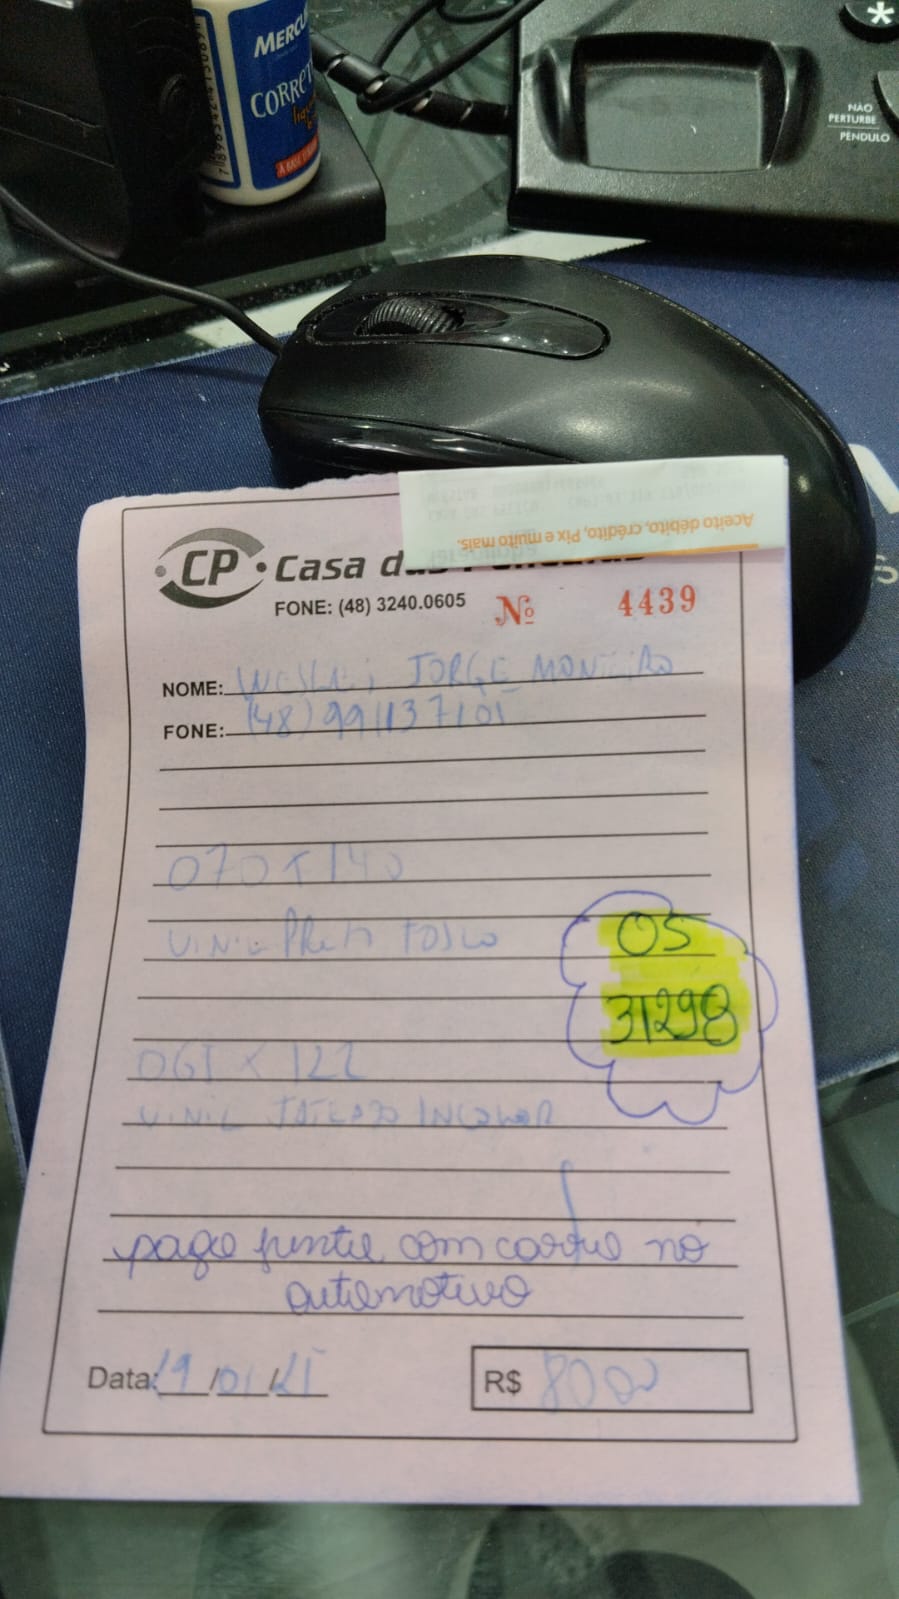 MERCU
CORRET
À BASE D'
*
NÃO
PERTURBE
PÊNDULO
Aceito débito, crédito, Pix e muito mais.
CP Casa das
FONE: (48) 3240.0605 Nº 4439
NOME: JORGE MONTEIRO
FONE: (48) 991137101
070 X 140
VINIL PRETO FOSCO
OS
31298
061 X 122
VINIL JATEADO INCOLOR
pago junto com carro no
automotivo
Data: 19/01/25 R$ 80,00